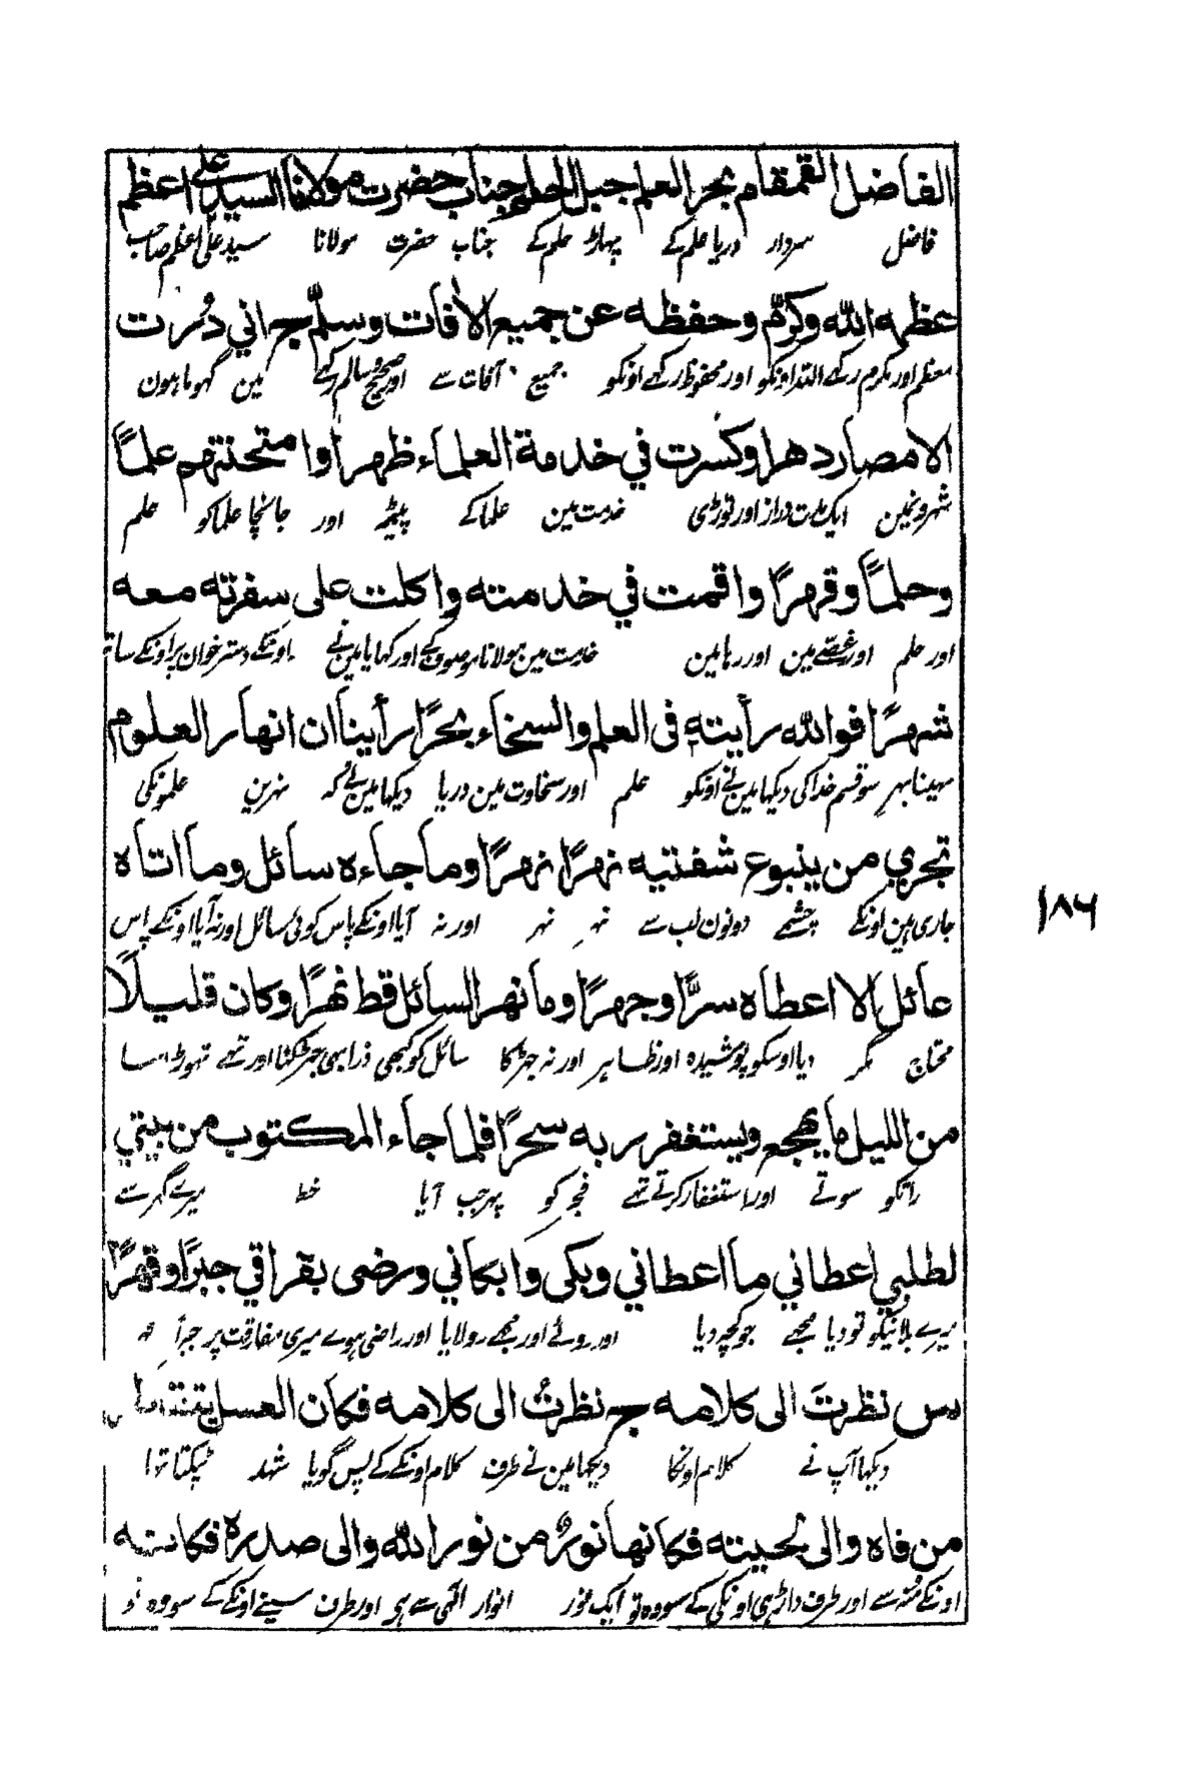 الفاضل القمقام بحر العلم جبل الحلم جناب حضرت مولانا السيد علي اعظم
فاضل سردار دریا علم کے پہاڑ حلم کے جناب حضرت مولانا سید علی اعظم صاحب
عظمه الله وكرّم وحفظه عن جميع الاٰفات وسلّم ج اني دُرت
معظم اور مکرم رکہے اللہ اونکو اور محفوظ رکہے اونکو جمیع آفات سے اور صحیح و سالم رکہے مین گہوما ہون
الامصار دهرا وكسرت في خدمة العلماء ظهرا وامتحنتهم علماً
شہرونمین ایک مدت دراز اور توڑی خدمت مین علما کے پیٹھہ اور جانچا علما کو علم
وحلماً وقهرًا واقمت في خدمته واكلت على سفرته معه
اور حلم اور غصے مین اور رہا مین خدمت مین مولانا موصوف کے اور کہایا مین نے اونکے دسترخوان پر اونکے ساتہ
شهرًا فوالله رأيته فى العلم والسخاء بحرًا رأينا ان انهار العلوم
مہینا بہر سو قسم خدا کی دیکہا مین نے اونکو علم اور سخاوت مین دریا دیکہا مین نے کہ نہرین علمونکی
تجري من ينبوع شفتيه نهرًا نهرًا وما جاءه سائل وما اتاه
جاری ہین اونکے چشمے دونون لب سے نہر نہر اور نہ آیا اونکے پاس کوئی سائل اور نہ آیا اونکے پاس
عائل الا اعطاه سرًّا وجهرًا وما نهر السائل قط نهرًا وكان قليلًا
محتاج مگر دیا اوسکو پوشیدہ اور ظاہر اور نہ جہڑکا سائل کو کبھی ذرا بہی جہڑکنا اور تہے تہوڑا سا
من الليل ما يهجع ويستغفر ربه سحرًا فلما جاء المكتوب من بيتي
راتکو سوتے اور استغفار کرتے تہے فجر کو پہر جب آیا خط میرے گہر سے
لطلبي اعطاني ما اعطاني وبكى وابكاني ورضى بفراقي جبرًا وقهرًا
میرے بلانیکو تو دیا مجہے جو کچہ دیا اور روئے اور مجہے رولایا اور راضی ہوے میری مفارقت پر جبراً
س نظرتَ الى كلامه ج نظرتُ الى كلامه فكان العسل
دیکہا آپ نے کلام اونکا دیکہا مین نے طرف کلام اونکے کے پس گویا شہد ٹپکتا تہا
من فاه والى لحيته فكانها نورٌ من نور الله والى صدره فكانه
اونکے منہ سے اور طرف داڑہی اونکی کے سو وہ تو ایک نور انوار الٰہی سے ہی اور طرف سینے اونکے کے سو وہ تو
۱۸۶